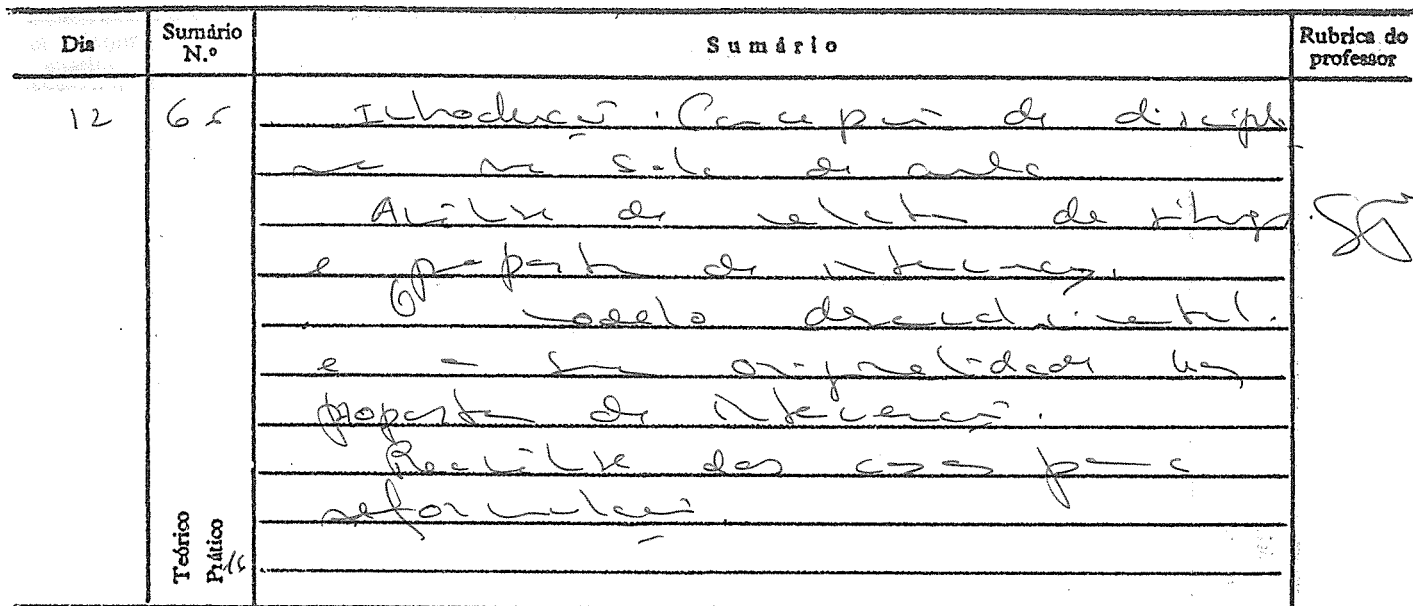 Dia Sumário N.º Sumário Rubrica do professor
12 65 Introdução. Concepção de discipli
na na sala de aula
Análise de relatos de
e proposta de intervenção.
modelo
e a sua originalidade
proposta de intervenção.
Reanálise dos casos para
reformulação
Teórico
Prático